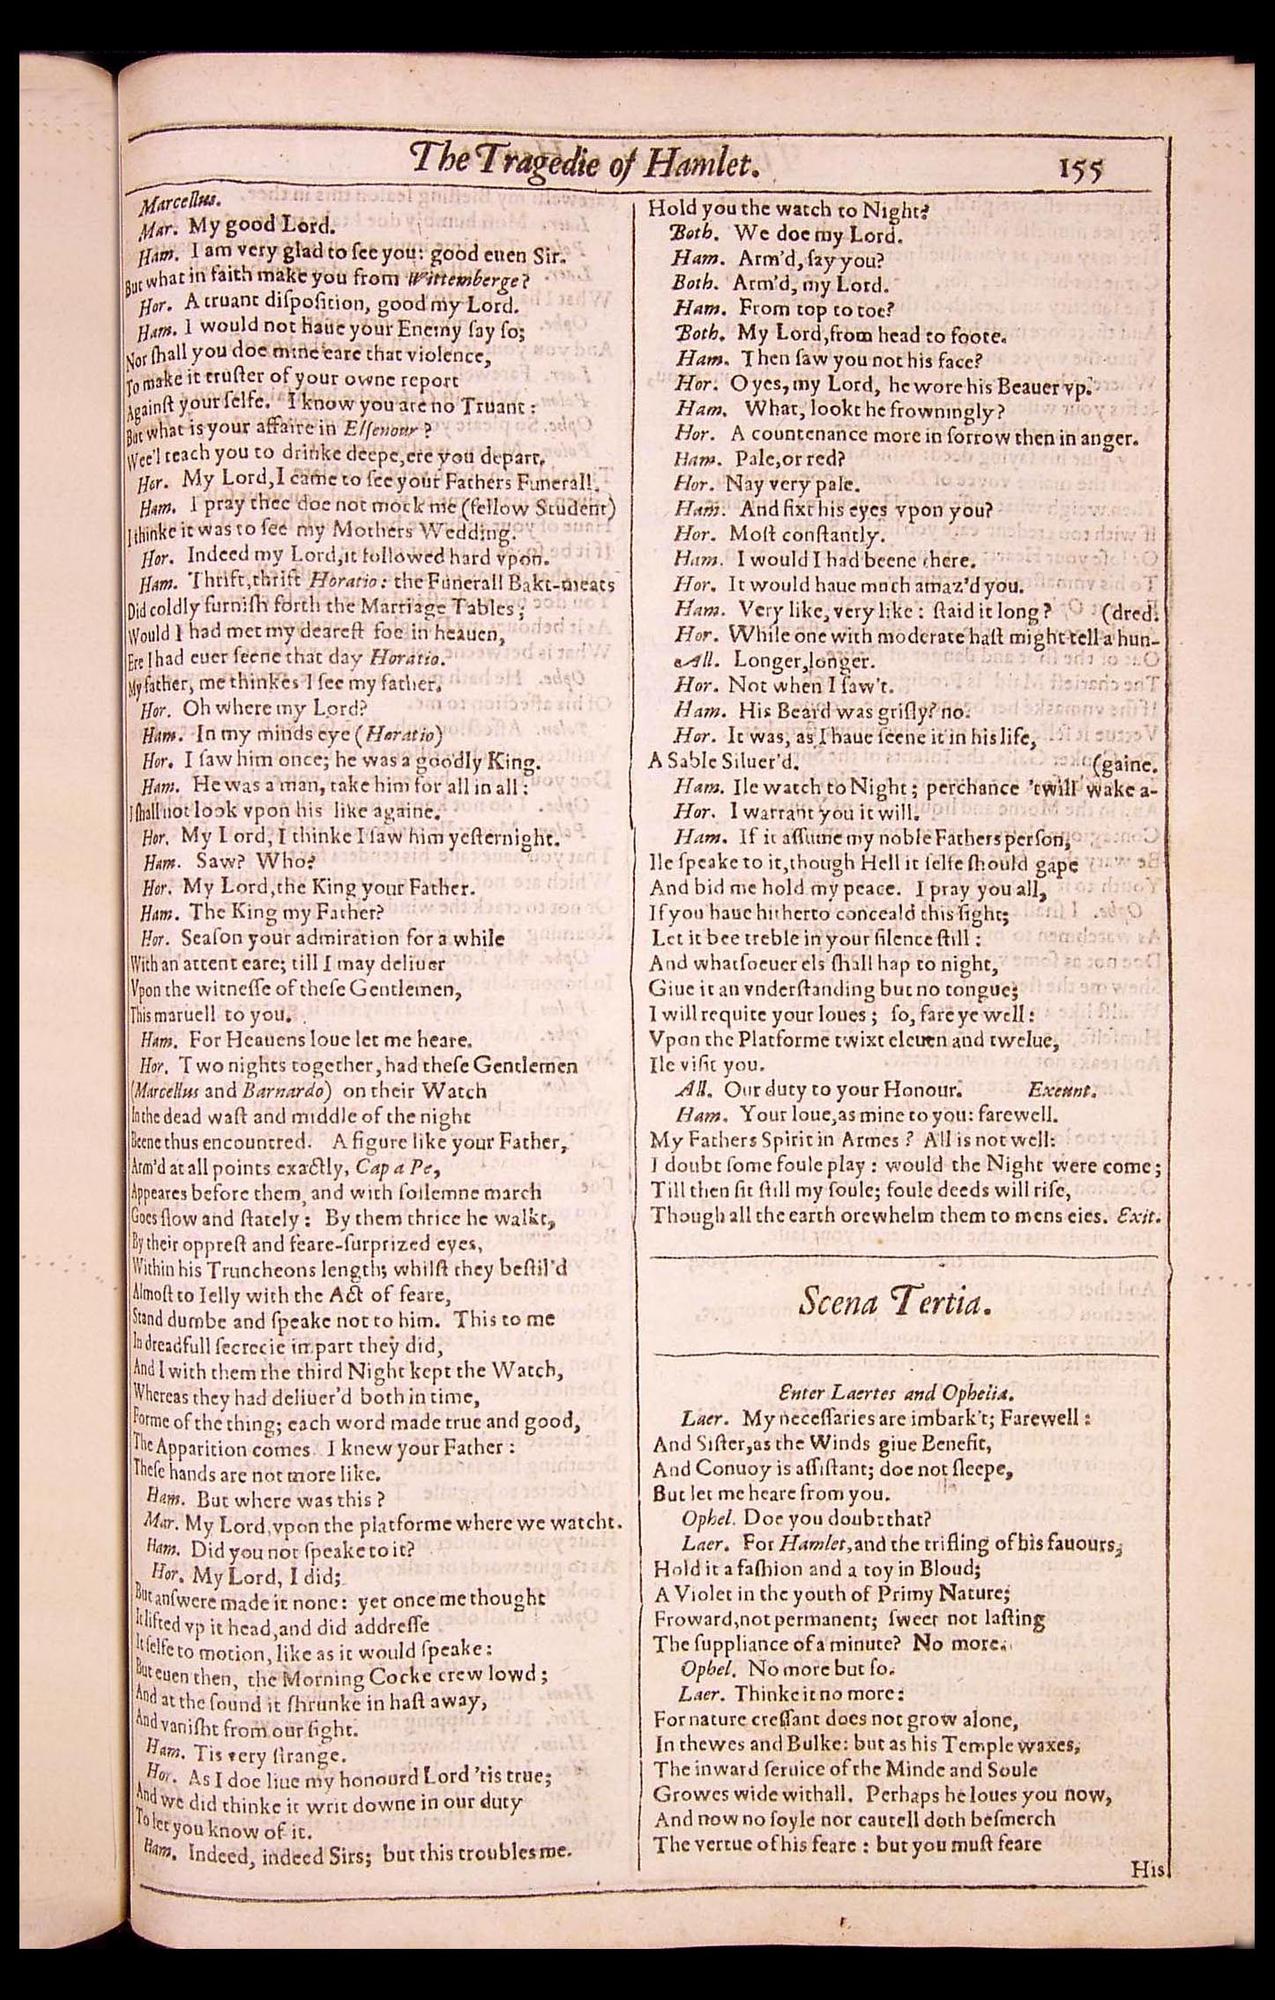 The Tragedie of Hamlet. 155
Marcellus.
Mar. My good Lord.
Ham. I am very glad to ſee you: good euen Sir.
But what in faith make you from Wittemberge?
Hor. A truant diſpoſition, good my Lord.
Ham. I would not haue your Enemy ſay ſo;
Nor ſhall you doe mine eare that violence,
To make it truſter of your owne report
Againſt your ſelfe. I know you are no Truant:
But what is your affaire in Elſenour?
Wee'l teach you to drinke deepe, ere you depart.
Hor. My Lord, I came to ſee your Fathers Funerall.
Ham. I pray thee doe not mock me (fellow Student)
I thinke it was to ſee my Mothers Wedding.
Hor. Indeed my Lord, it followed hard vpon.
Ham. Thrift, thrift Horatio: the Funerall Bakt-meats
Did coldly furniſh forth the Marriage Tables;
Would I had met my deareſt foe in heauen,
Ere I had euer ſeene that day Horatio.
My father, me thinkes I ſee my father.
Hor. Oh where my Lord?
Ham. In my minds eye (Horatio)
Hor. I ſaw him once; he was a goodly King.
Ham. He was a man, take him for all in all:
I ſhall not look vpon his like againe.
Hor. My Lord, I thinke I ſaw him yeſternight.
Ham. Saw? Who?
Hor. My Lord, the King your Father.
Ham. The King my Father?
Hor. Seaſon your admiration for a while
With an attent eare; till I may deliuer
Vpon the witneſſe of theſe Gentlemen,
This maruell to you.
Ham. For Heauens loue let me heare.
Hor. Two nights together, had theſe Gentlemen
(Marcellus and Barnardo) on their Watch
In the dead waſt and middle of the night
Beene thus encountred. A figure like your Father,
Arm'd at all points exactly, Cap a Pe,
Appeares before them, and with ſollemne march
Goes ſlow and ſtately: By them thrice he walkt,
By their oppreſt and feare-ſurprized eyes,
Within his Truncheons length; whilſt they beſtil'd
Almoſt to Ielly with the Act of feare,
Stand dumbe and ſpeake not to him. This to me
In dreadfull ſecrecie impart they did,
And I with them the third Night kept the Watch,
Whereas they had deliuer'd both in time,
Forme of the thing; each word made true and good,
The Apparition comes. I knew your Father:
Theſe hands are not more like.
Ham. But where was this?
Mar. My Lord, vpon the platforme where we watcht.
Ham. Did you not ſpeake to it?
Hor. My Lord, I did;
But anſwere made it none: yet once me thought
It lifted vp it head, and did addreſſe
It ſelfe to motion, like as it would ſpeake:
But euen then, the Morning Cocke crew lowd;
And at the ſound it ſhrunke in haſt away,
And vaniſht from our ſight.
Ham. Tis very ſtrange.
Hor. As I doe liue my honourd Lord 'tis true;
And we did thinke it writ downe in our duty
To let you know of it.
Ham. Indeed, indeed Sirs; but this troubles me.
Hold you the watch to Night?
Both. We doe my Lord.
Ham. Arm'd, ſay you?
Both. Arm'd, my Lord.
Ham. From top to toe?
Both. My Lord, from head to foote.
Ham. Then ſaw you not his face?
Hor. O yes, my Lord, he wore his Beauer vp.
Ham. What, lookt he frowningly?
Hor. A countenance more in ſorrow then in anger.
Ham. Pale, or red?
Hor. Nay very pale.
Ham. And fixt his eyes vpon you?
Hor. Moſt conſtantly.
Ham. I would I had beene there.
Hor. It would haue much amaz'd you.
Ham. Very like, very like: ſtaid it long? (dred.
Hor. While one with moderate haſt might tell a hun-
All. Longer, longer.
Hor. Not when I ſaw't.
Ham. His Beard was griſly? no.
Hor. It was, as I haue ſeene it in his life,
A Sable Siluer'd. (gaine.
Ham. Ile watch to Night; perchance 'twill wake a-
Hor. I warrant you it will.
Ham. If it aſſume my noble Fathers perſon,
Ile ſpeake to it, though Hell it ſelfe ſhould gape
And bid me hold my peace. I pray you all,
If you haue hitherto conceald this ſight;
Let it bee treble in your ſilence ſtill:
And whatſoeuer els ſhall hap to night,
Giue it an vnderſtanding but no tongue;
I will requite your loues; ſo, fare ye well:
Vpon the Platforme twixt eleuen and twelue,
Ile viſit you.
All. Our duty to your Honour. Exeunt.
Ham. Your loue, as mine to you: farewell.
My Fathers Spirit in Armes? All is not well:
I doubt ſome foule play: would the Night were come;
Till then ſit ſtill my ſoule; foule deeds will riſe,
Though all the earth orewhelm them to mens eies. Exit.
Scena Tertia.
Enter Laertes and Ophelia.
Laer. My neceſſaries are imbark't; Farewell:
And Siſter, as the Winds giue Benefit,
And Conuoy is aſſiſtant; doe not ſleepe,
But let me heare from you.
Ophel. Doe you doubt that?
Laer. For Hamlet, and the trifling of his fauours,
Hold it a faſhion and a toy in Bloud;
A Violet in the youth of Primy Nature;
Froward, not permanent; ſweet not laſting
The ſuppliance of a minute? No more.
Ophel. No more but ſo.
Laer. Thinke it no more:
For nature creſſant does not grow alone,
In thewes and Bulke: but as his Temple waxes,
The inward ſeruice of the Minde and Soule
Growes wide withall. Perhaps he loues you now,
And now no ſoyle nor cautell doth beſmerch
The vertue of his feare: but you muſt feare
His